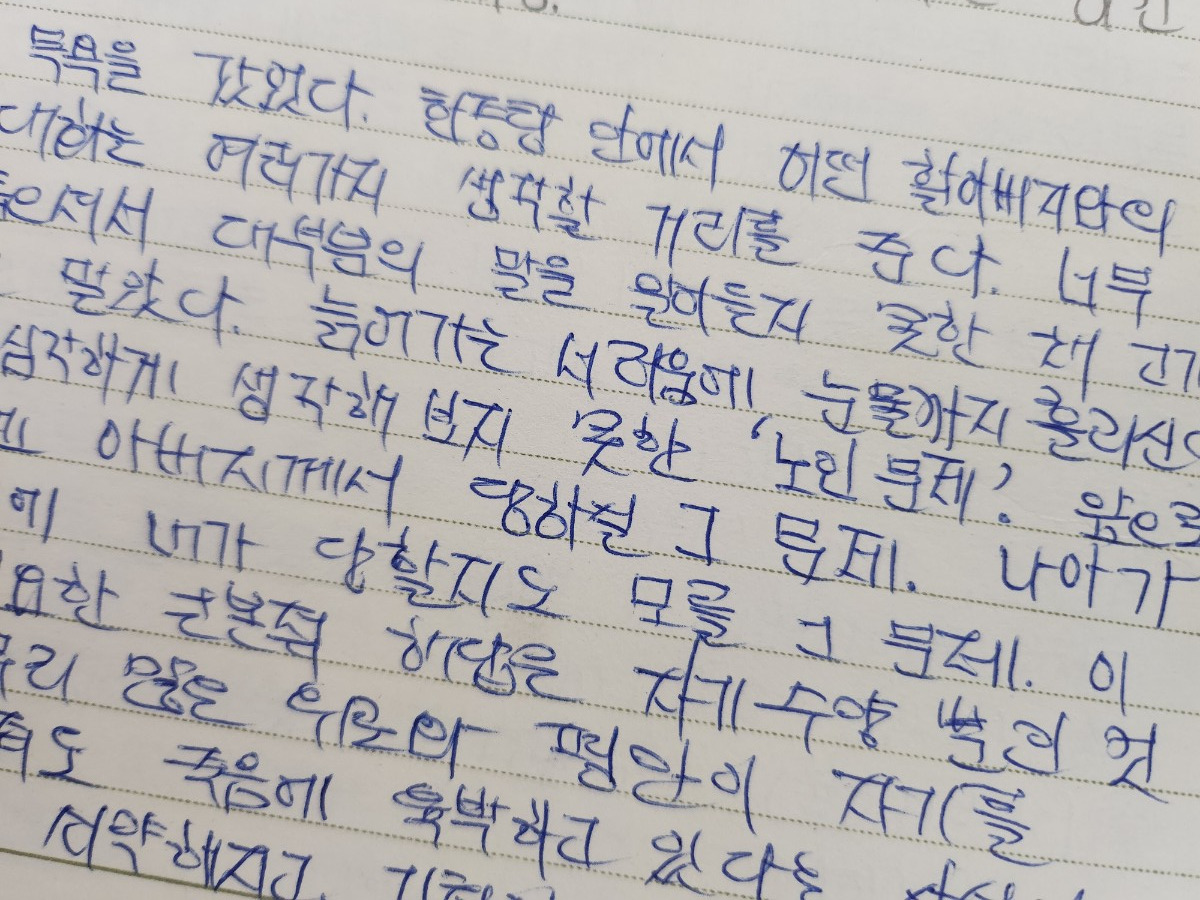 목욕을 갔었다. 한증탕 안에서 어떤 할아버지와의
대화는 여러가지 생각할 거리를 준다. 너무
대부분의 말을 알아듣지 못한 채
말았다. 늙어가는 서러움에 눈물까지 흘리신
심각하게 생각해 보지 못한 '노인 문제'. 앞으로
아버지께서 당하실 그 문제. 나아가
에 내가 당할지도 모를 그 문제. 이
한 근본적 해답은 자기 수양 뿐인 것
많은 위로와 평안이 자기를
죽음에 육박하고 있다는
쇠약해지고